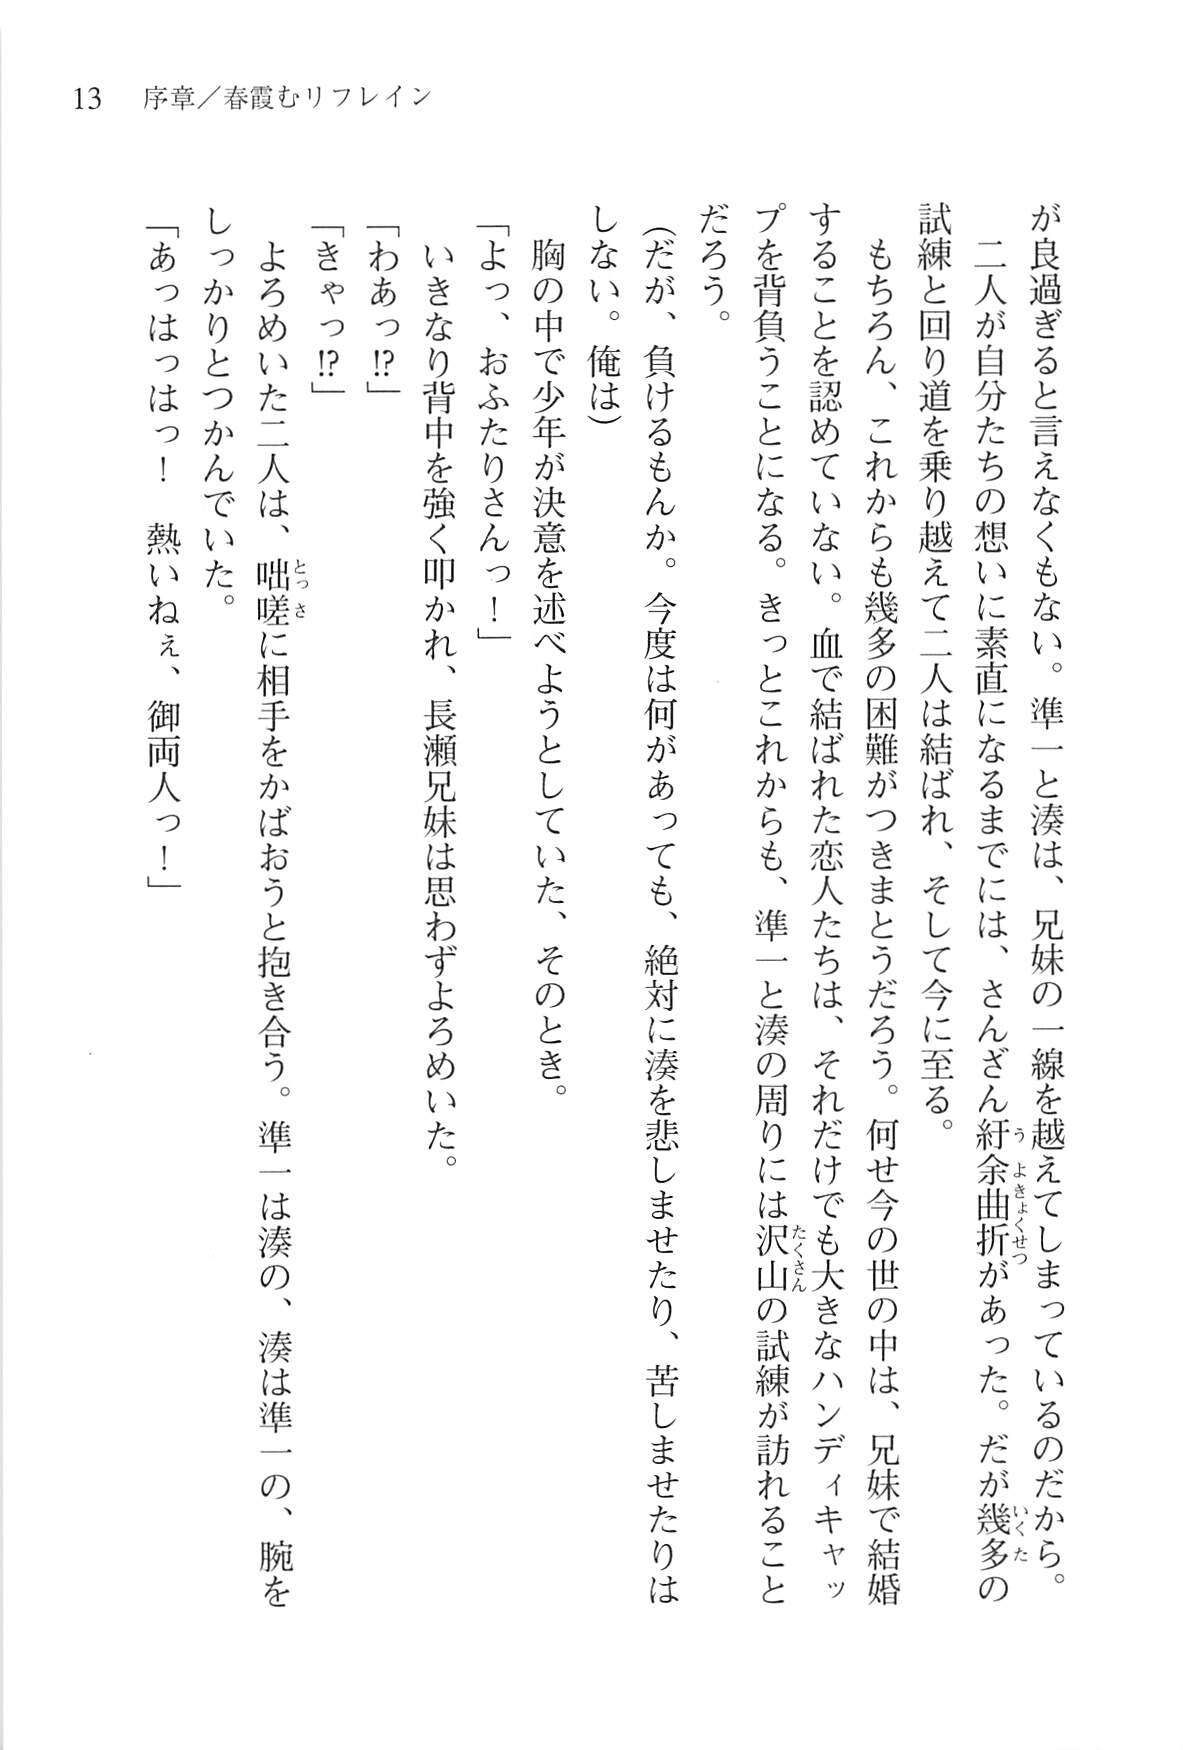 13　序章／春霞むリフレイン
が良過ぎると言えなくもない。準一と湊は、兄妹の一線を越えてしまっているのだから。
　二人が自分たちの想いに素直になるまでには、さんざん紆余曲折があった。だが幾多の
試練と回り道を乗り越えて二人は結ばれ、そして今に至る。
　もちろん、これからも幾多の困難がつきまとうだろう。何せ今の世の中は、兄妹で結婚
することを認めていない。血で結ばれた恋人たちは、それだけでも大きなハンディキャッ
プを背負うことになる。きっとこれからも、準一と湊の周りには沢山の試練が訪れること
だろう。
（だが、負けるもんか。今度は何があっても、絶対に湊を悲しませたり、苦しませたりは
しない。俺は）
　胸の中で少年が決意を述べようとしていた、そのとき。
「よっ、おふたりさんっ！」
　いきなり背中を強く叩かれ、長瀬兄妹は思わずよろめいた。
「わあっ!?」
「きゃっ!?」
　よろめいた二人は、咄嗟に相手をかばおうと抱き合う。準一は湊の、湊は準一の、腕を
しっかりとつかんでいた。
「あっはっはっ！　熱いねぇ、御両人っ！」